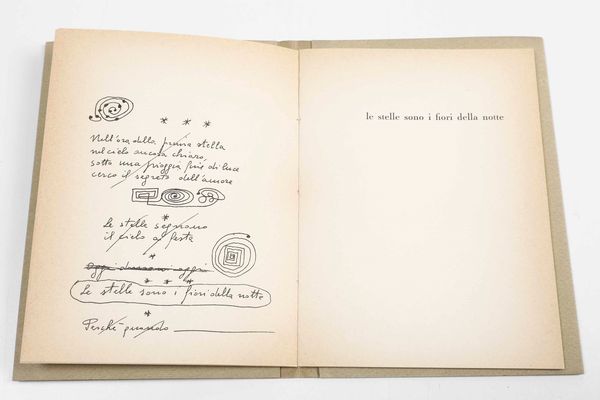 * * *
Nell'ora della prima stella
nel cielo ancora chiaro,
sotto una pioggia fine di luce
cerco il segreto dell'amore
*
Le stelle segnano
il cielo a festa
*
oggi domani oggi
Le stelle sono i fiori della notte
* * *
*
Perché quando
le stelle sono i fiori della notte